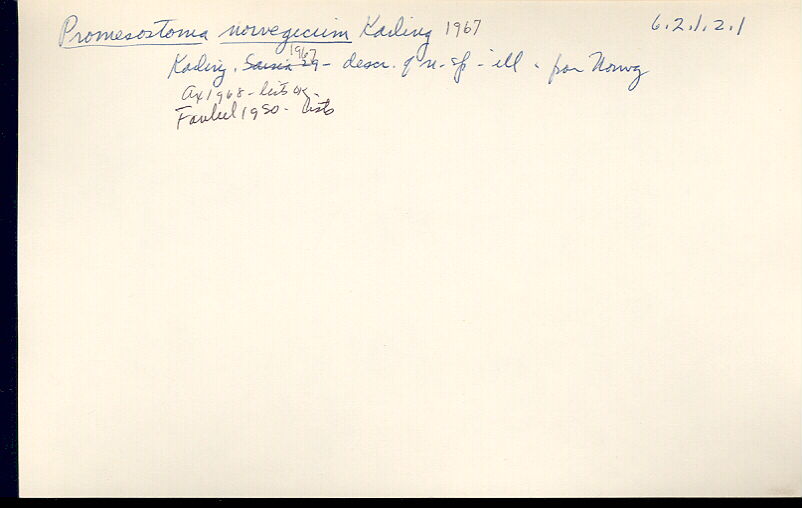 Promesostoma norvegicum Karling 1967 6.2.1.2.1
Karling. Sarsia 29 1967 - descr. of n. sp - ill - from Norwg
Ax 1968 - lists
Faubel 1980 - lists